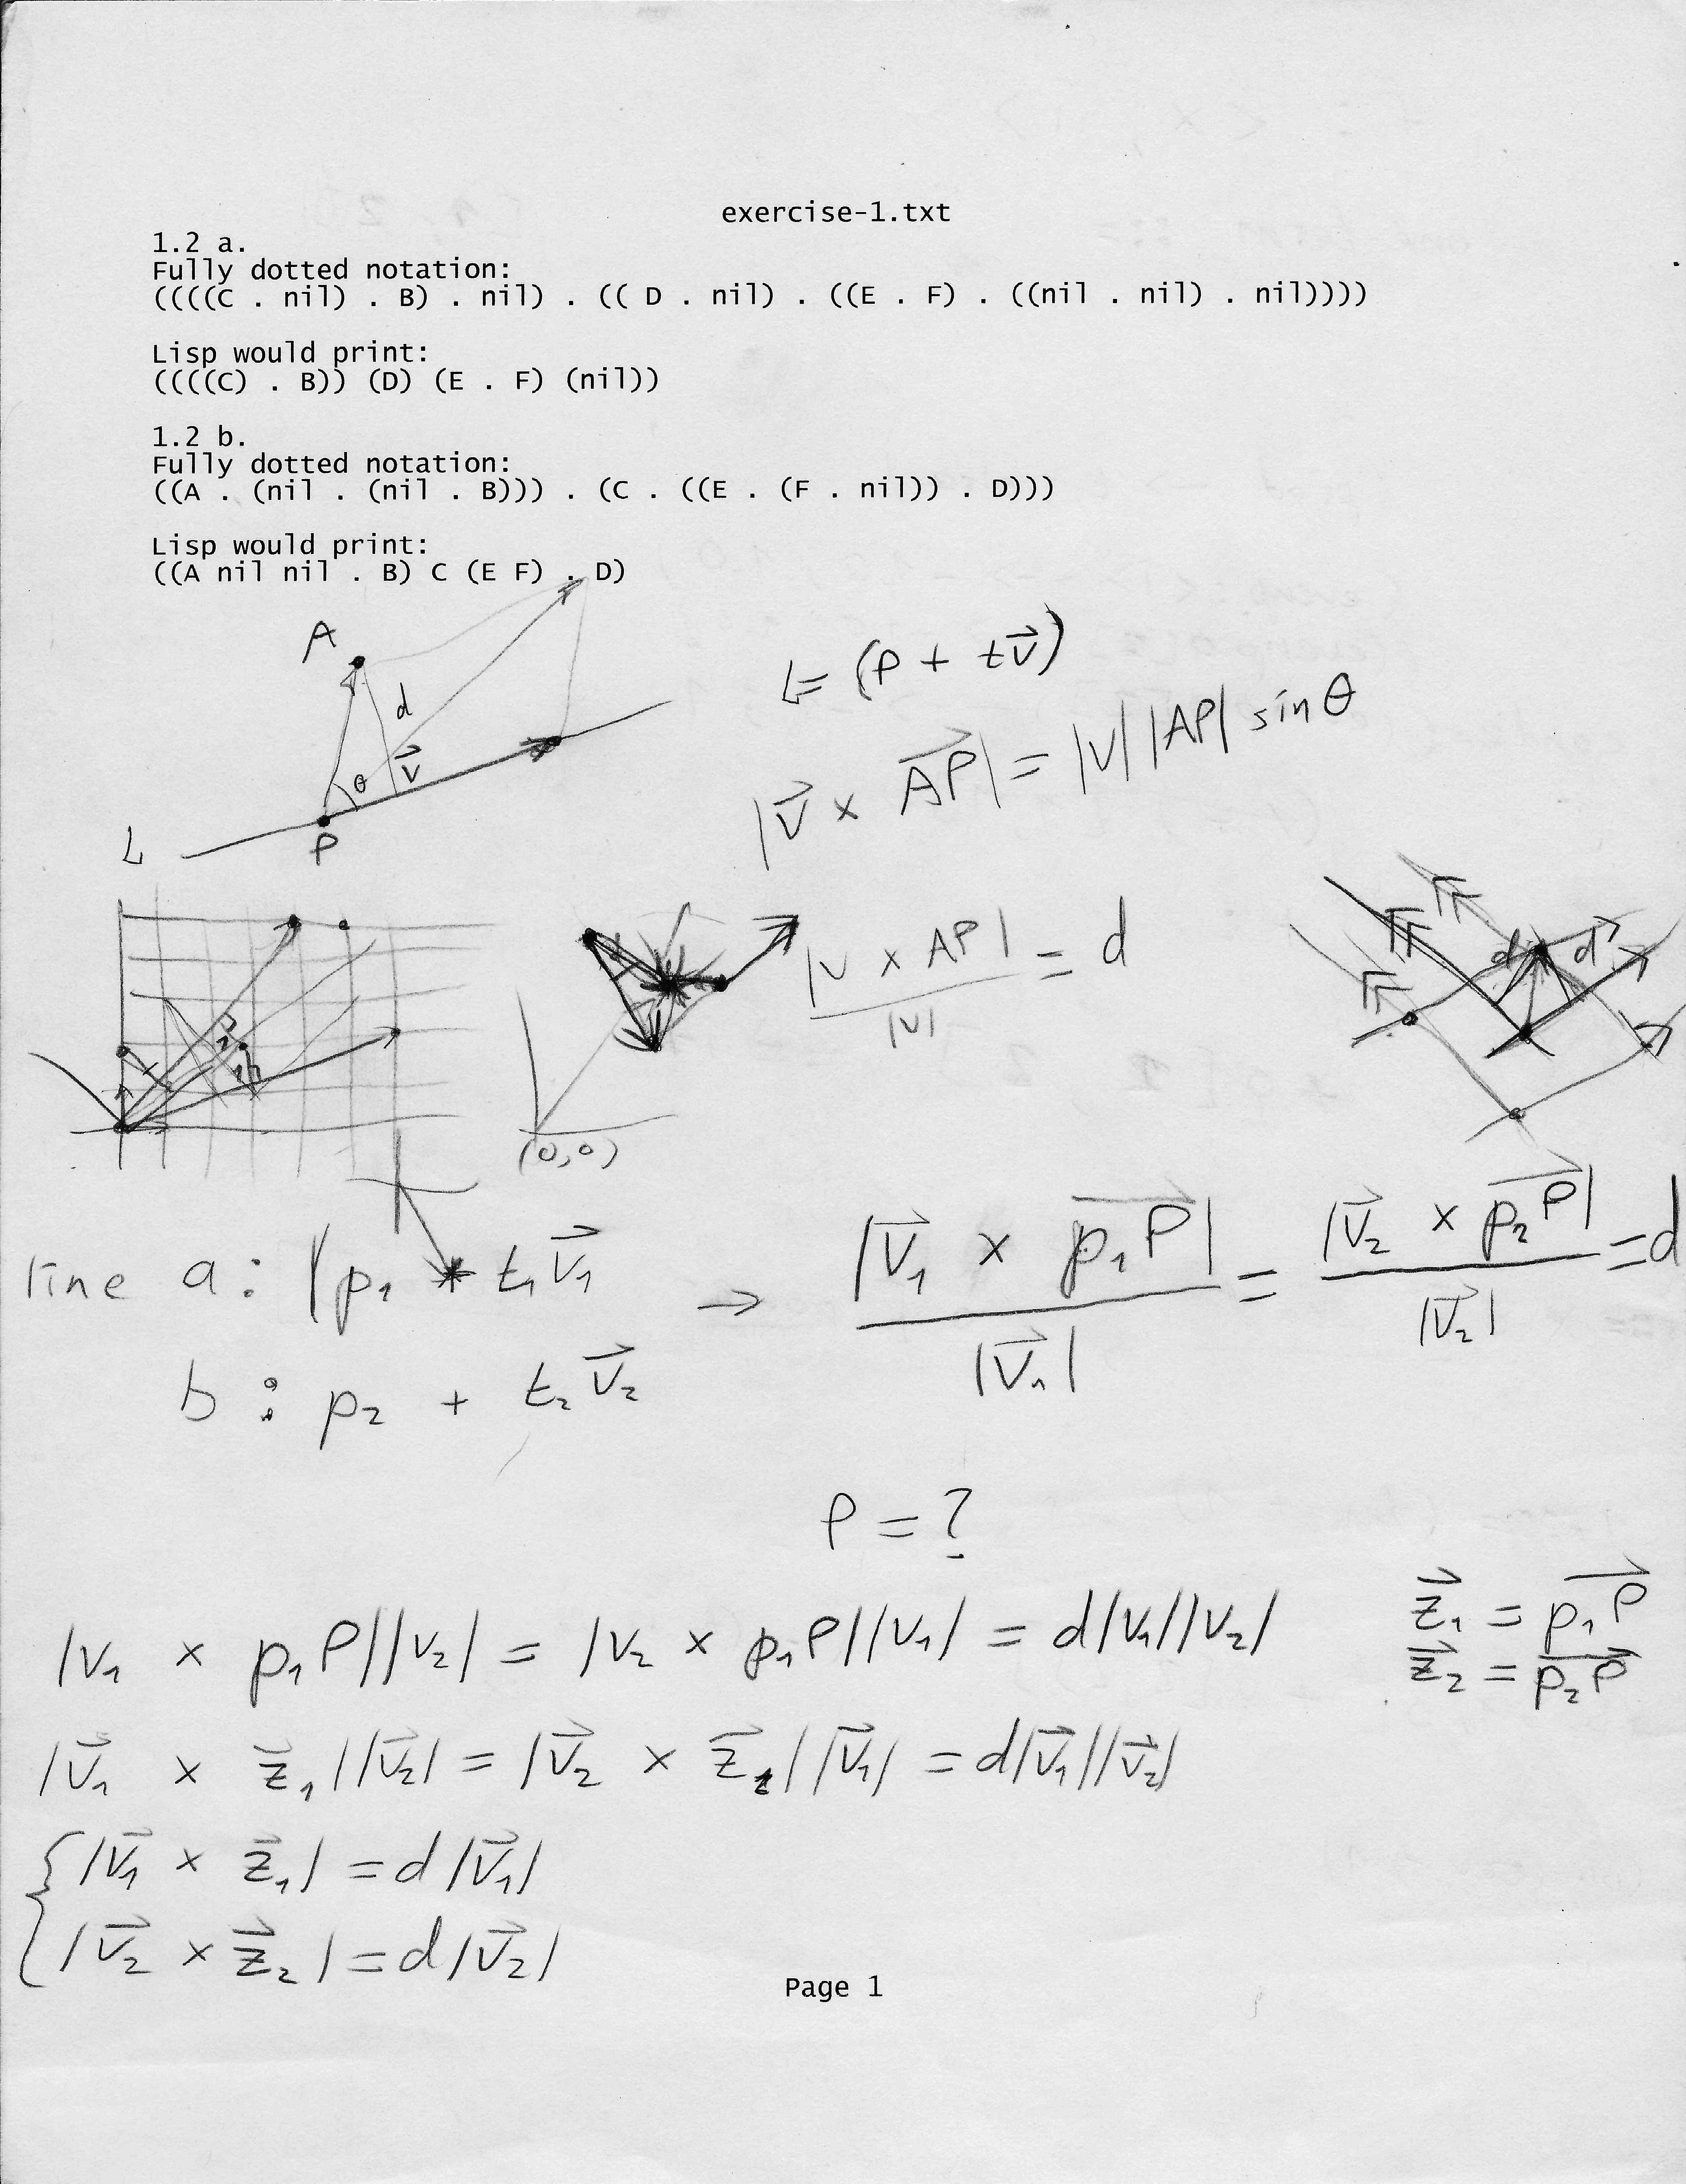 exercise-1.txt
1.2 a.
Fully dotted notation:
((((C . nil) . B) . nil) . (( D . nil) . ((E . F) . ((nil . nil) . nil))))
Lisp would print:
((((C) . B)) (D) (E . F) (nil))
1.2 b.
Fully dotted notation:
((A . (nil . (nil . B))) . (C . ((E . (F . nil)) . D)))
Lisp would print:
((A nil nil . B) C (E F) . D)
A
d
θ
v⃗
P
L
L = (P + tv⃗)
|v⃗ × AP⃗| = |V| |AP| sin θ
|V × AP| / |V| = d
d d
(0,0)
line a: p₁ * t₁v⃗₁ → |v⃗₁ × p₁P⃗| / |v⃗₁| = |v⃗₂ × p₂P⃗| / |v⃗₂| = d
b : p₂ + t₂v⃗₂
P = ?
|v₁ × p₁P||v₂| = |v₂ × p₁P||v₁| = d|v₁||v₂|
z⃗₁ = p₁P⃗
z⃗₂ = p₂P⃗
|v⃗₁ × z⃗₁||v⃗₂| = |v⃗₂ × z⃗₂||v⃗₁| = d|v⃗₁||v⃗₂|
{ |v⃗₁ × z⃗₁| = d|v⃗₁|
|v⃗₂ × z⃗₂| = d|v⃗₂|
Page 1